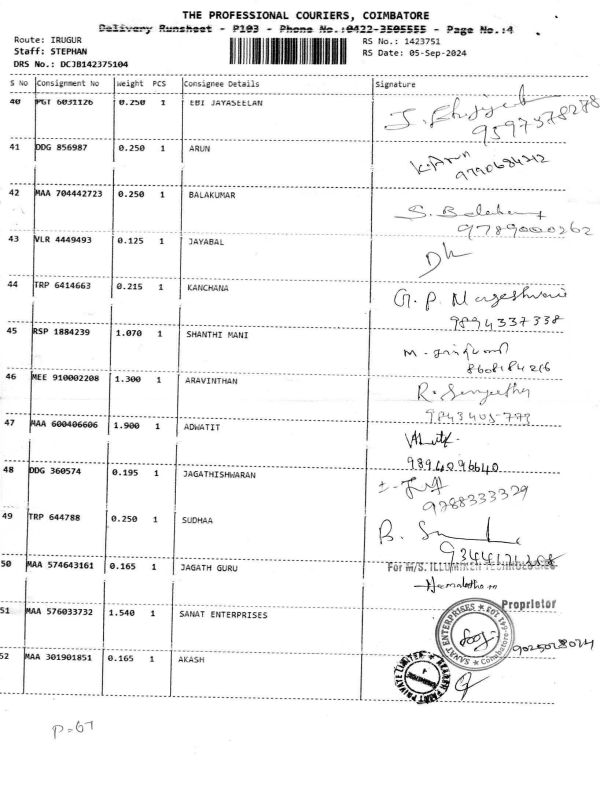 THE PROFESSIONAL COURIERS, COIMBATORE
Delivery Runsheet - P103 - Phone No.:0422-3505555 - Page No.:4
Route: IRUGUR
RS No.: 1423751
Staff: STEPHAN
RS Date: 05-Sep-2024
DRS No.: DCJB142375104
S No Consignment No Weight PCS Consignee Details Signature
40 PGT 6031126 0.250 1 EBI JAYASEELAN
9597378278
41 DDG 856987 0.250 1 ARUN
K. Arun
42 MAA 704442723 0.250 1 BALAKUMAR
9789000262
43 VLR 4449493 0.125 1 JAYABAL
44 TRP 6414663 0.215 1 KANCHANA
G. P. Mageshwari
9894337338
45 RSP 1884239 1.070 1 SHANTHI MANI
8608184266
46 MEE 910002208 1.300 1 ARAVINTHAN
R. Sangeetha
9843405-779
47 MAA 600406606 1.900 1 ADWATIT
9894096640
48 DDG 360574 0.195 1 JAGATHISHWARAN
9288333329
49 TRP 644788 0.250 1 SUDHAA
50 MAA 574643161 0.165 1 JAGATH GURU
For M/S. ILLUMINEN TECHNOLOGIES
Hemalatha.m
Proprietor
51 MAA 576033732 1.540 1 SANAT ENTERPRISES
SANAT ENTERPRISES ★ Coimbatore-641
9025028024
52 MAA 301901851 0.165 1 AKASH
PRIVATE LIMITED
P=67